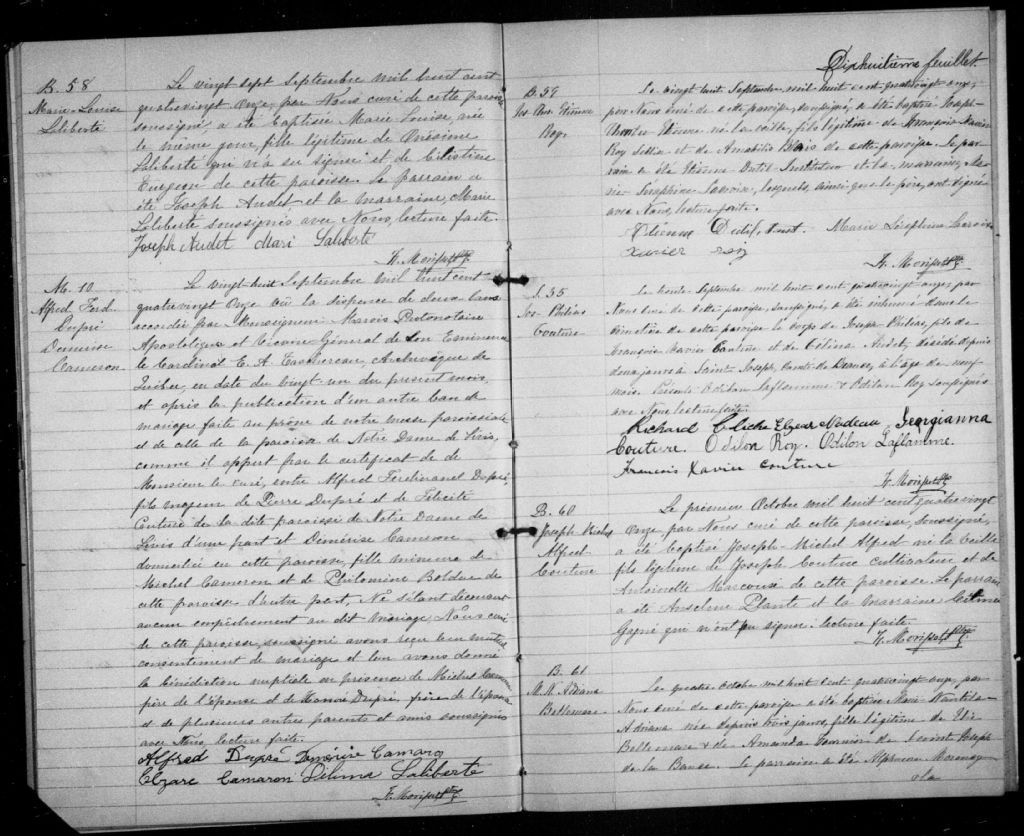 B. 58
Marie Louise
Laliberté
Le vingt sept Septembre mil huit cent
quatre vingt Onze, par Nous curé de cette paroisse
soussigné, a été baptisée Marie Louise, née
le même jour, fille légitime de Onésime
Laliberté qui n'a su signer et de Célestine
de cette paroisse. Le parrain a
été Joseph Audet et la marraine, Marie
Laliberté soussignés avec Nous, lecture faite.
Joseph Audet Mari Laliberté
M. 10
Alfred Ferd.
Dupré
Démérise
Cameron
Le vingt huit Septembre mil huit cent
quatre vingt Onze vu la dispense de deux bans
accordée par Monseigneur Marois Protonotaire
Apostolique et Vicaire-Général de Son Eminence
le Cardinal E. A. Taschereau, Archevêque de
Québec, en date du vingt-un du présent mois,
et après la publication d'un autre ban de
mariage faite au prône de notre messe paroissiale
et de celle de la paroisse de Notre Dame de Lévis,
comme il appert par le certificat de
Monsieur le curé, entre Alfred Ferdinand Dupré,
fils majeur de Pierre Dupré et de Félicité
Couture de la dite paroisse de Notre Dame de
Lévis d'une part et Démérise Cameron
domiciliée en cette paroisse, fille mineure de
Michel Cameron et de Philomène Bolduc de
cette paroisse d'autre part, Ne s'étant découvert
aucun empêchement au dit mariage, Nous curé
de cette paroisse, soussigné avons reçu leur mutuel
consentement de mariage et leur avons donné
la bénédiction nuptiale en présence de Michel Cameron
père de l'épouse et de Honoré Dupré, frère de l'époux
et de plusieurs autres parents et amis soussignés
avec Nous, lecture faite.
Alfred Dupré Démérise Camaro
Elzare Camaron Délima Laliberté
Dixhuitième feuillet
B. 59
Jos. Étienne
Roy
Le vingt huit Septembre mil huit cent quatrevingt onze,
par Nous curé de cette paroisse, soussigné, a été baptisé Joseph-
Étienne né la veille, fils légitime de François Xavier
Roy et de de cette paroisse. Le par-
rain a été Étienne Instituteur et la marraine, Ma-
rie Séraphine Lacroix, lesquels, ainsi que le père, ont signé
avec Nous, lecture faite.
Étienne Inst. Marie Séraphine Lacroix
Xavier roy
S. 35
Jos-Philéas
Couture
Le trente Septembre mil huit cent quatrevingt onze, par
Nous curé de cette paroisse, soussigné, a été inhumé dans le
cimetière de cette paroisse le corps de Joseph Philéas, fils de
François Xavier Couture et de Célina Audet, décédé depuis
deux jours à Saint Joseph, Comté de Beauce, à l'âge de neuf
mois. Présents Odilon Laflamme & Odilon Roy soussignés
avec Nous lecture faite.
Richard Cliche Elzear Nadeau Georgianna
Couture. Odilon Roy. Odilon Laflamme.
Francois Xavier Couture
B. 60
Joseph Michel
Alfred
Couture
Le premier Octobre mil huit cent quatre vingt
Onze, par Nous curé de cette paroisse, soussigné,
a été baptisé Joseph-Michel Alfred né la veille
fils légitime de Joseph Couture cultivateur et de
Antoinette Marcoux de cette paroisse. Le parrain
a été Anselme Plante et la marraine
Gagné qui n'ont pu signer. lecture faite.
B. 61
M. A. Adriana
Bellemare
Le quatre Octobre mil huit cent quatrevingt onze, par
Nous curé de cette paroisse a été baptisée Marie
Adriana née depuis trois jours, fille légitime de
Bellemare & de Amanda Fournier de Saint Joseph
de la Beauce. Le parrain a été Alphonse
& la